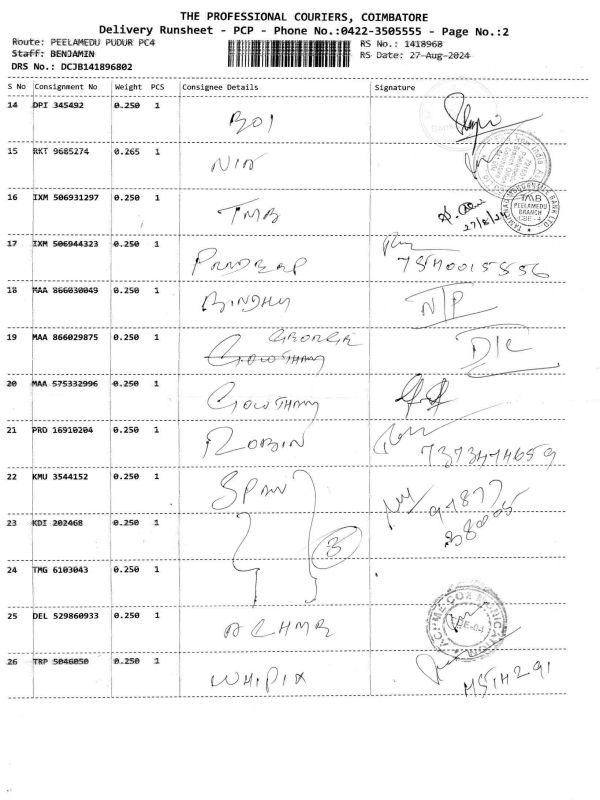 THE PROFESSIONAL COURIERS, COIMBATORE
Delivery Runsheet - PCP - Phone No.:0422-3505555 - Page No.:2
Route: PEELAMEDU PUDUR PC4
RS No.: 1418968
Staff: BENJAMIN
RS Date: 27-Aug-2024
DRS No.: DCJB141896802
S No Consignment No Weight PCS Consignee Details Signature
14 DPI 345492 0.250 1 BOI
15 RKT 9685274 0.265 1 NIA
16 IXM 506931297 0.250 1 TMB 27/8/24
TMB
PEELAMEDU
BRANCH
CBE-4
17 IXM 506944323 0.250 1 PRADEEP
18 MAA 866030049 0.250 1 BINDHU N/P
19 MAA 866029875 0.250 1 GEORGE D/C
GOWTHAM
20 MAA 575332996 0.250 1 GOWTHAM
21 PRO 16910204 0.250 1 ROBIN 7373474659
22 KMU 3544152 0.250 1 SPAN
23 KDI 202468 0.250 1
3
24 TMG 6103043 0.250 1
25 DEL 529860933 0.250 1 ACHME
26 TRP 5046050 0.250 1 WHIPIX